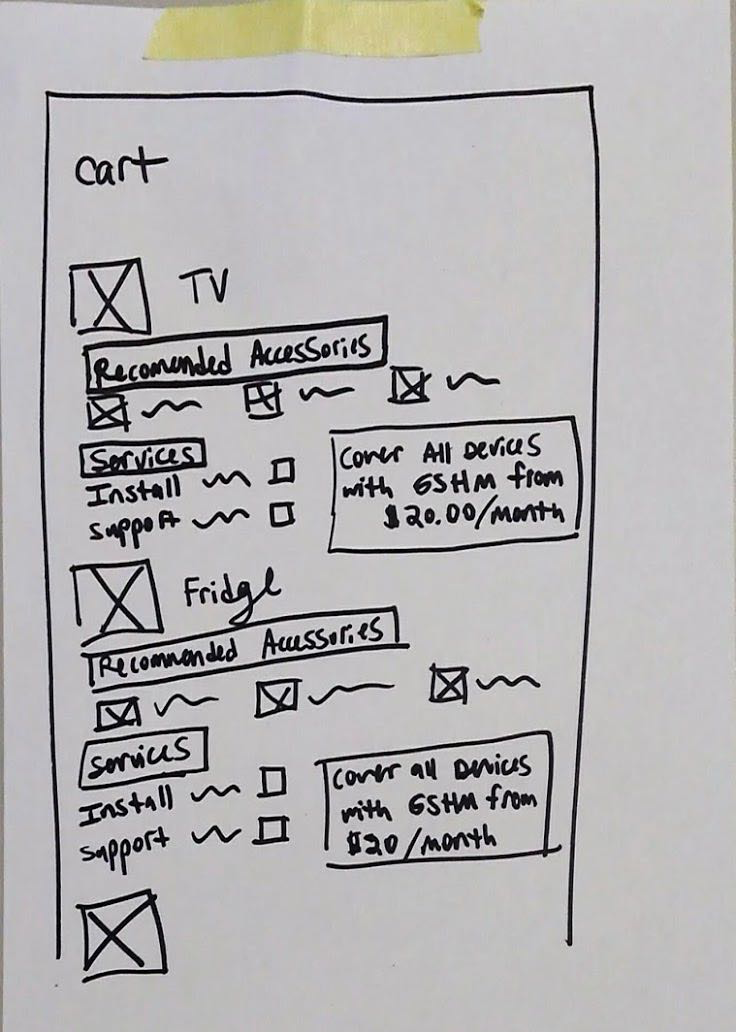 cart
TV
Recomended Accessories
Services
Install
Support
Cover All Devices
with GSHM from
$20.00/month
Fridge
Recommended Accessories
Services
Install
Support
Cover all Devices
with GSHM from
$20/month